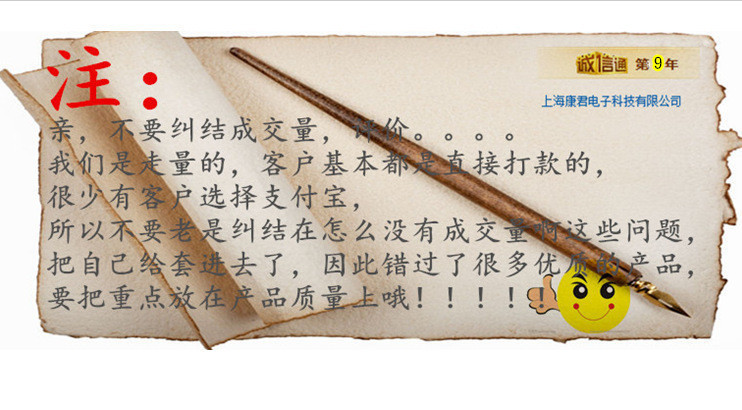 注：
诚信通 第9年
上海康君电子科技有限公司
亲，不要纠结成交量，评价。。。。
我们是走量的，客户基本都是直接打款的，
很少有客户选择支付宝，
所以不要老是纠结在怎么没有成交量啊这些问题，
把自己给套进去了，因此错过了很多优质的产品，
要把重点放在产品质量上哦！！！！！